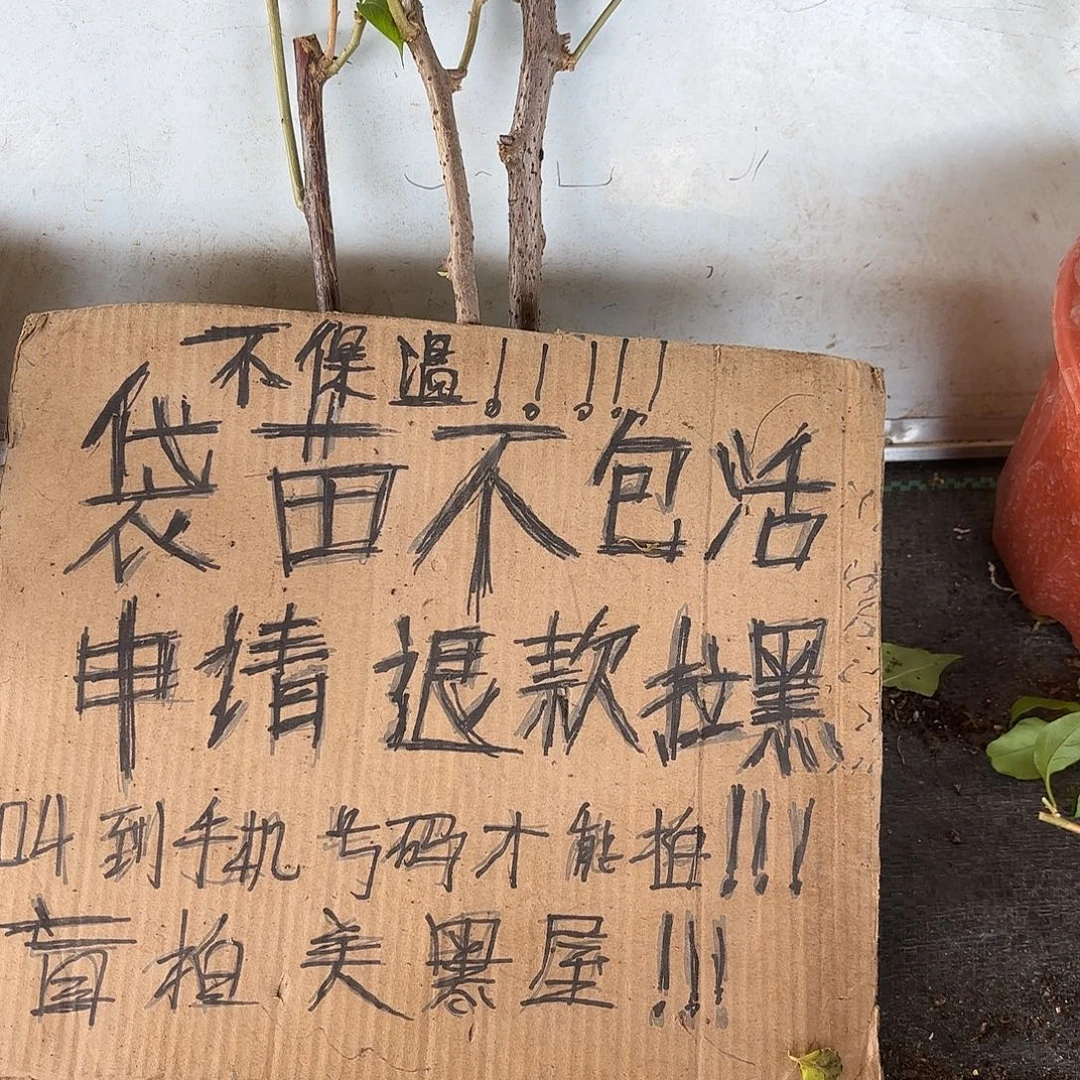 不保温!!!!!
袋苗不包活
申请退款拉黑
叫到手机号码才能拍!!!
盲拍美黑屋!!!